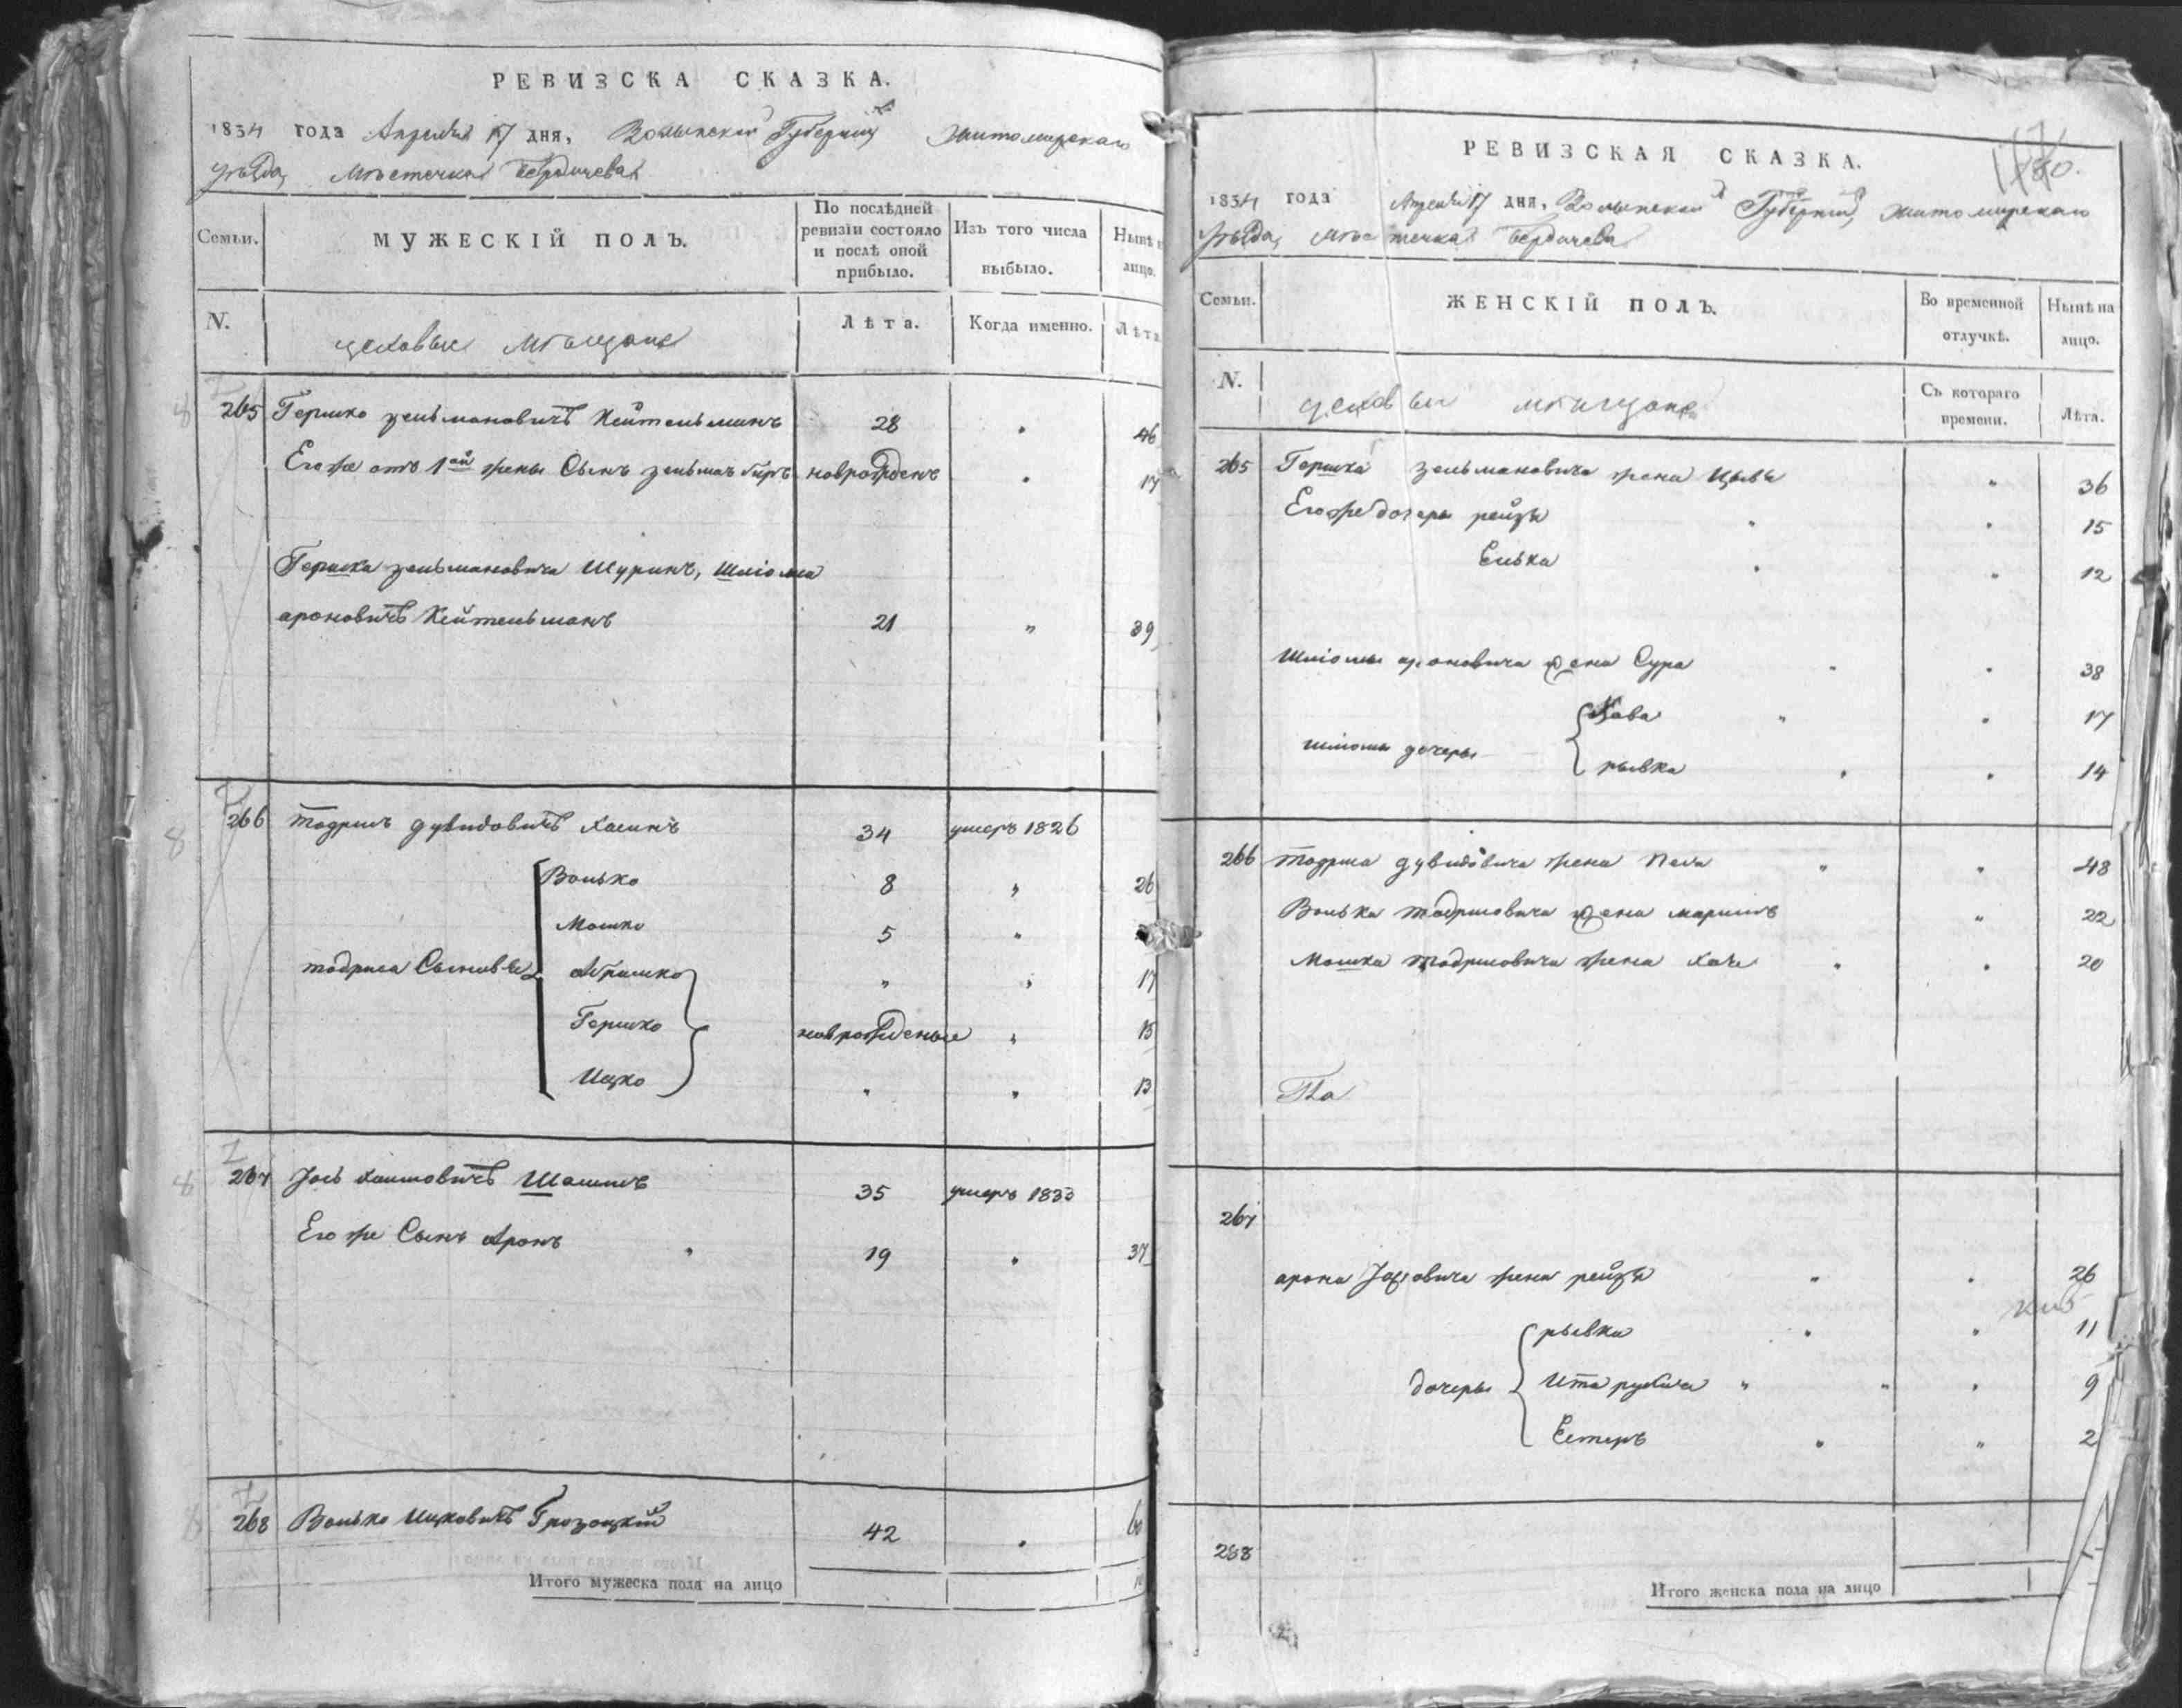 РЕВИЗСКА СКАЗКА.
1834 года Апреля 17 дня, Волынской Губернии Житомирскаго
уезда, Местечка Бердичева
Семьи.
МУЖЕСКІЙ ПОЛЪ.
По послѣдней ревизіи состояло и послѣ оной прибыло.
Изъ того числа выбыло.
Нынѣ
лицо.
N.
цеховые мещане
Лѣта.
Когда именно.
Лѣта
265 Гершко зельмановичъ Кейтельманъ 28 46
Егоже отъ 1ой жены Сынъ зельман новрожденъ 17
Гершка зельмановича Шуринъ, Шліома
ароновичъ Кейтельманъ 21 " 39
266 тодрисъ дувидовичъ 34 умеръ 1826
Волько 8 " 26
Мошко 5 "
тодриса Сыновья Абрамко " " 17
Гершко новрожденые " 15
Ицко " " 13
267 Іось хаимовичъ 35 умеръ 1833
Егоже Сынъ Аронъ " 19 " 37
268 Волько Ицковичъ Грозоцкій 42
Итого мужеска пола на лицо
180.
РЕВИЗСКАЯ СКАЗКА.
1834 года Апреля 17 дня, Волынской Губерніи, Житомирскаго
уезда, местечка Бердичева
Семьи.
ЖЕНСКІЙ ПОЛЪ.
Во временной отлучкѣ.
Нынѣ на лицо.
N.
цеховые мещане
Съ котораго времени.
Лѣта.
265 Гершка зельмановича жена Цывья " 36
Егоже дочеры рейзя " " 15
Елька " " 12
Шліомы ароновича жена Сура " " 38
Хава " " 17
шліомы дочеры
рывка " " 14
266 тодриса дувидовича жена Песя " " 48
Волька тодрисовича жена " 22
Мошка тодрисовича жена Хае " " 20
267
арона Іосовича жена рейзя " " 26
рывка " " 11
дочеры Ита " " " 9
Естеръ " " 2
268
Итого женска пола на лицо